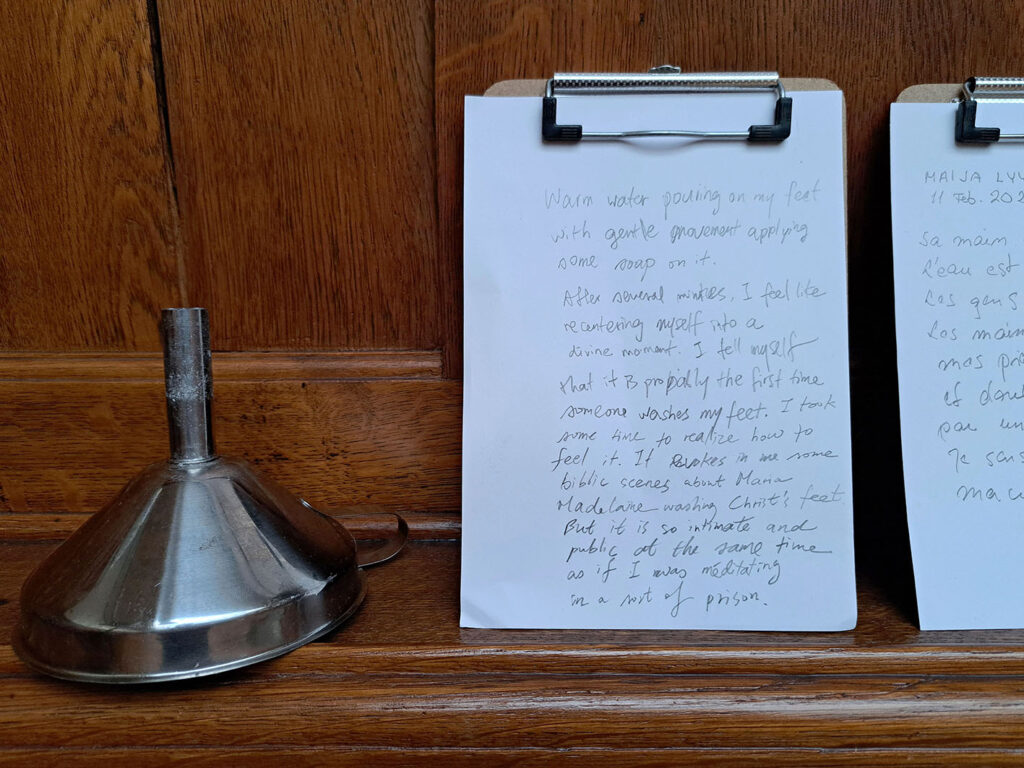 Warm water pouring on my feet
with gentle movement applying
some soap on it.
After several mintes, I feel like
recentering myself into a
divine moment. I tell myself
that it is propably the first time
someone washes my feet. I took
some time to realize how to
feel it. It evokes in me some
biblic scenes about Maria
Madelaine washing Christ's feet.
But it is so intimate and
public at the same time
as if I was meditating
in a sort of prison.
MAIJA LYY
11 Feb. 202
Sa main
L'eau est
Les gens
Les mains
mas
et
par un
Je sens
ma